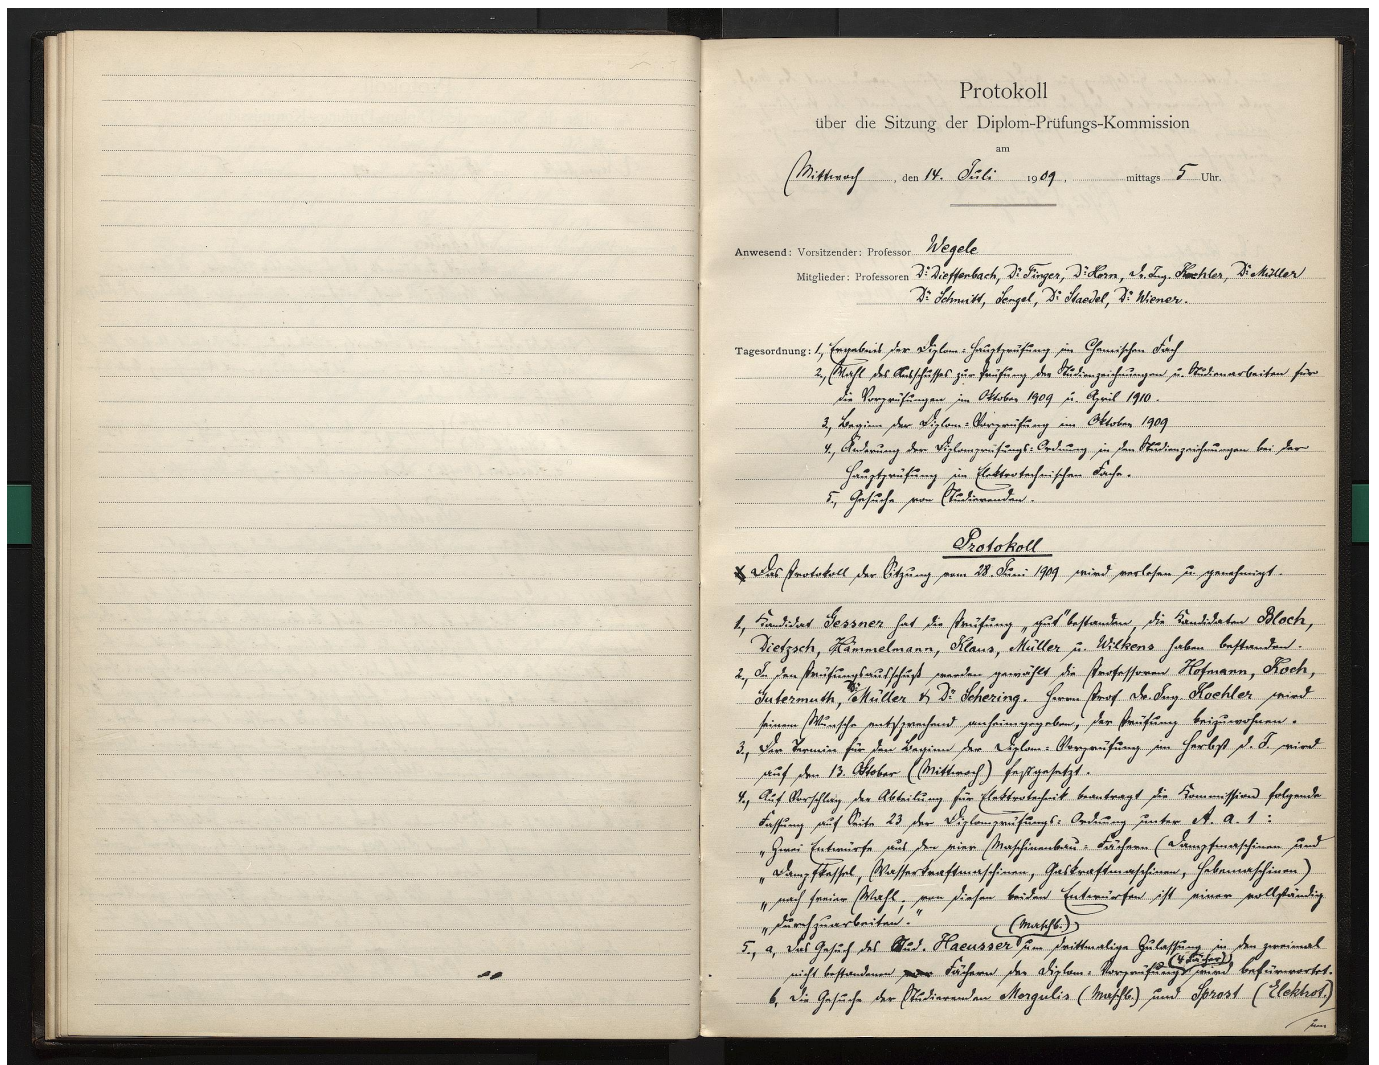 Protokoll
über die Sitzung der Diplom-Prüfungs-Kommission
am
Mittwoch, den 14. Juli 1909. mittags 5 Uhr.
Anwesend: Vorsitzender: Professor Wegele
Mitglieder: Professoren Dr. Dieffenbach, Dr. Finger, Dr. Horn, Dr. Ing. Koehler, Dr. Müller
Dr. Schmitt, Sengel, Dr. Staedel, Dr. Wiener.
Tagesordnung: 1., Ergebnis der Diplom-Hauptprüfung im Chemischen Fach
2., Wahl des Ausschusses zur Prüfung der Studienzeichnungen u. Studienarbeiten für
die Vorprüfungen im Oktober 1909 u. April 1910.
3., Beginn der Diplom-Vorprüfung im Oktober 1909
4., Änderung der Diplomprüfungs-Ordnung in den Studienzeichnungen bei der
Hauptprüfung im Elektrotechnischen Fache.
5., Gesuche von Studierenden.
Protokoll
Das Protokoll der Sitzung vom 28. Juni 1909 wird verlesen u. genehmigt.
1., Kandidat Gessner hat die Prüfung „gut" bestanden, die Kandidaten Bloch,
Dietzsch, Hämmelmann, Klaus, Müller u. Wilkens haben bestanden.
2., In den Prüfungsausschuß werden gewählt die Professoren Hofmann, Koch,
Gutermuth, Dr. Müller & Dr. Schering. Herrn Prof. Dr. Ing. Koehler wird
seinem Wunsche entsprechend anheimgegeben, der Prüfung beizuwohnen.
3., Der Termin für den Beginn der Diplom-Vorprüfung im Herbst d. J. wird
auf den 13. Oktober (Mittwoch) festgesetzt.
4., Auf Vorschlag der Abteilung für Elektrotechnik beantragt die Kommission folgende
Fassung auf Seite 23 der Diplomprüfungs-Ordnung unter A. a. 1:
„Zwei Entwürfe aus den vier Maschinenbau-Fächern (Dampfmaschinen und
„Dampfkessel, Wasserkraftmaschinen, Gaskraftmaschinen, Hebemaschinen)
„nach freier Wahl; von diesen beiden Entwürfen ist einer vollständig
„durchzuarbeiten."
5., a, Das Gesuch des Stud. Haeusser (Maschb.) um drittmalige Zulassung in den zweimal
nicht bestandenen Fächern der Diplom-Vorprüfung (4 Fächer) wird befürwortet.
b, Die Gesuche der Studierenden Mergulis (Maschb.) und Sprost (Elektrot.)
um